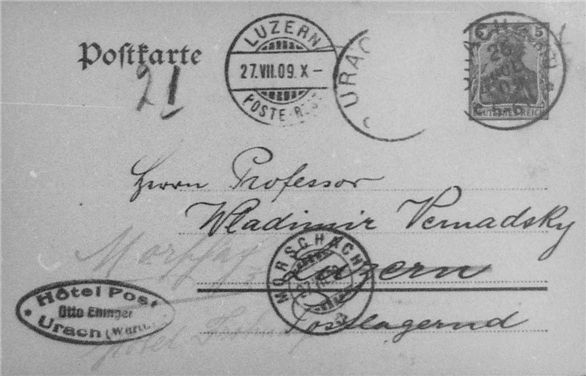 Postkarte
21
LUZERN
27.VII.09.X-
POSTE
URAC
5
DEUTSCHES REICH
Herrn Professor
Wladimir Vernadsky
Luzern
MORSCHACH
Postlagernd
Hôtel Post
Otto Eninger
Urach (Württ.)